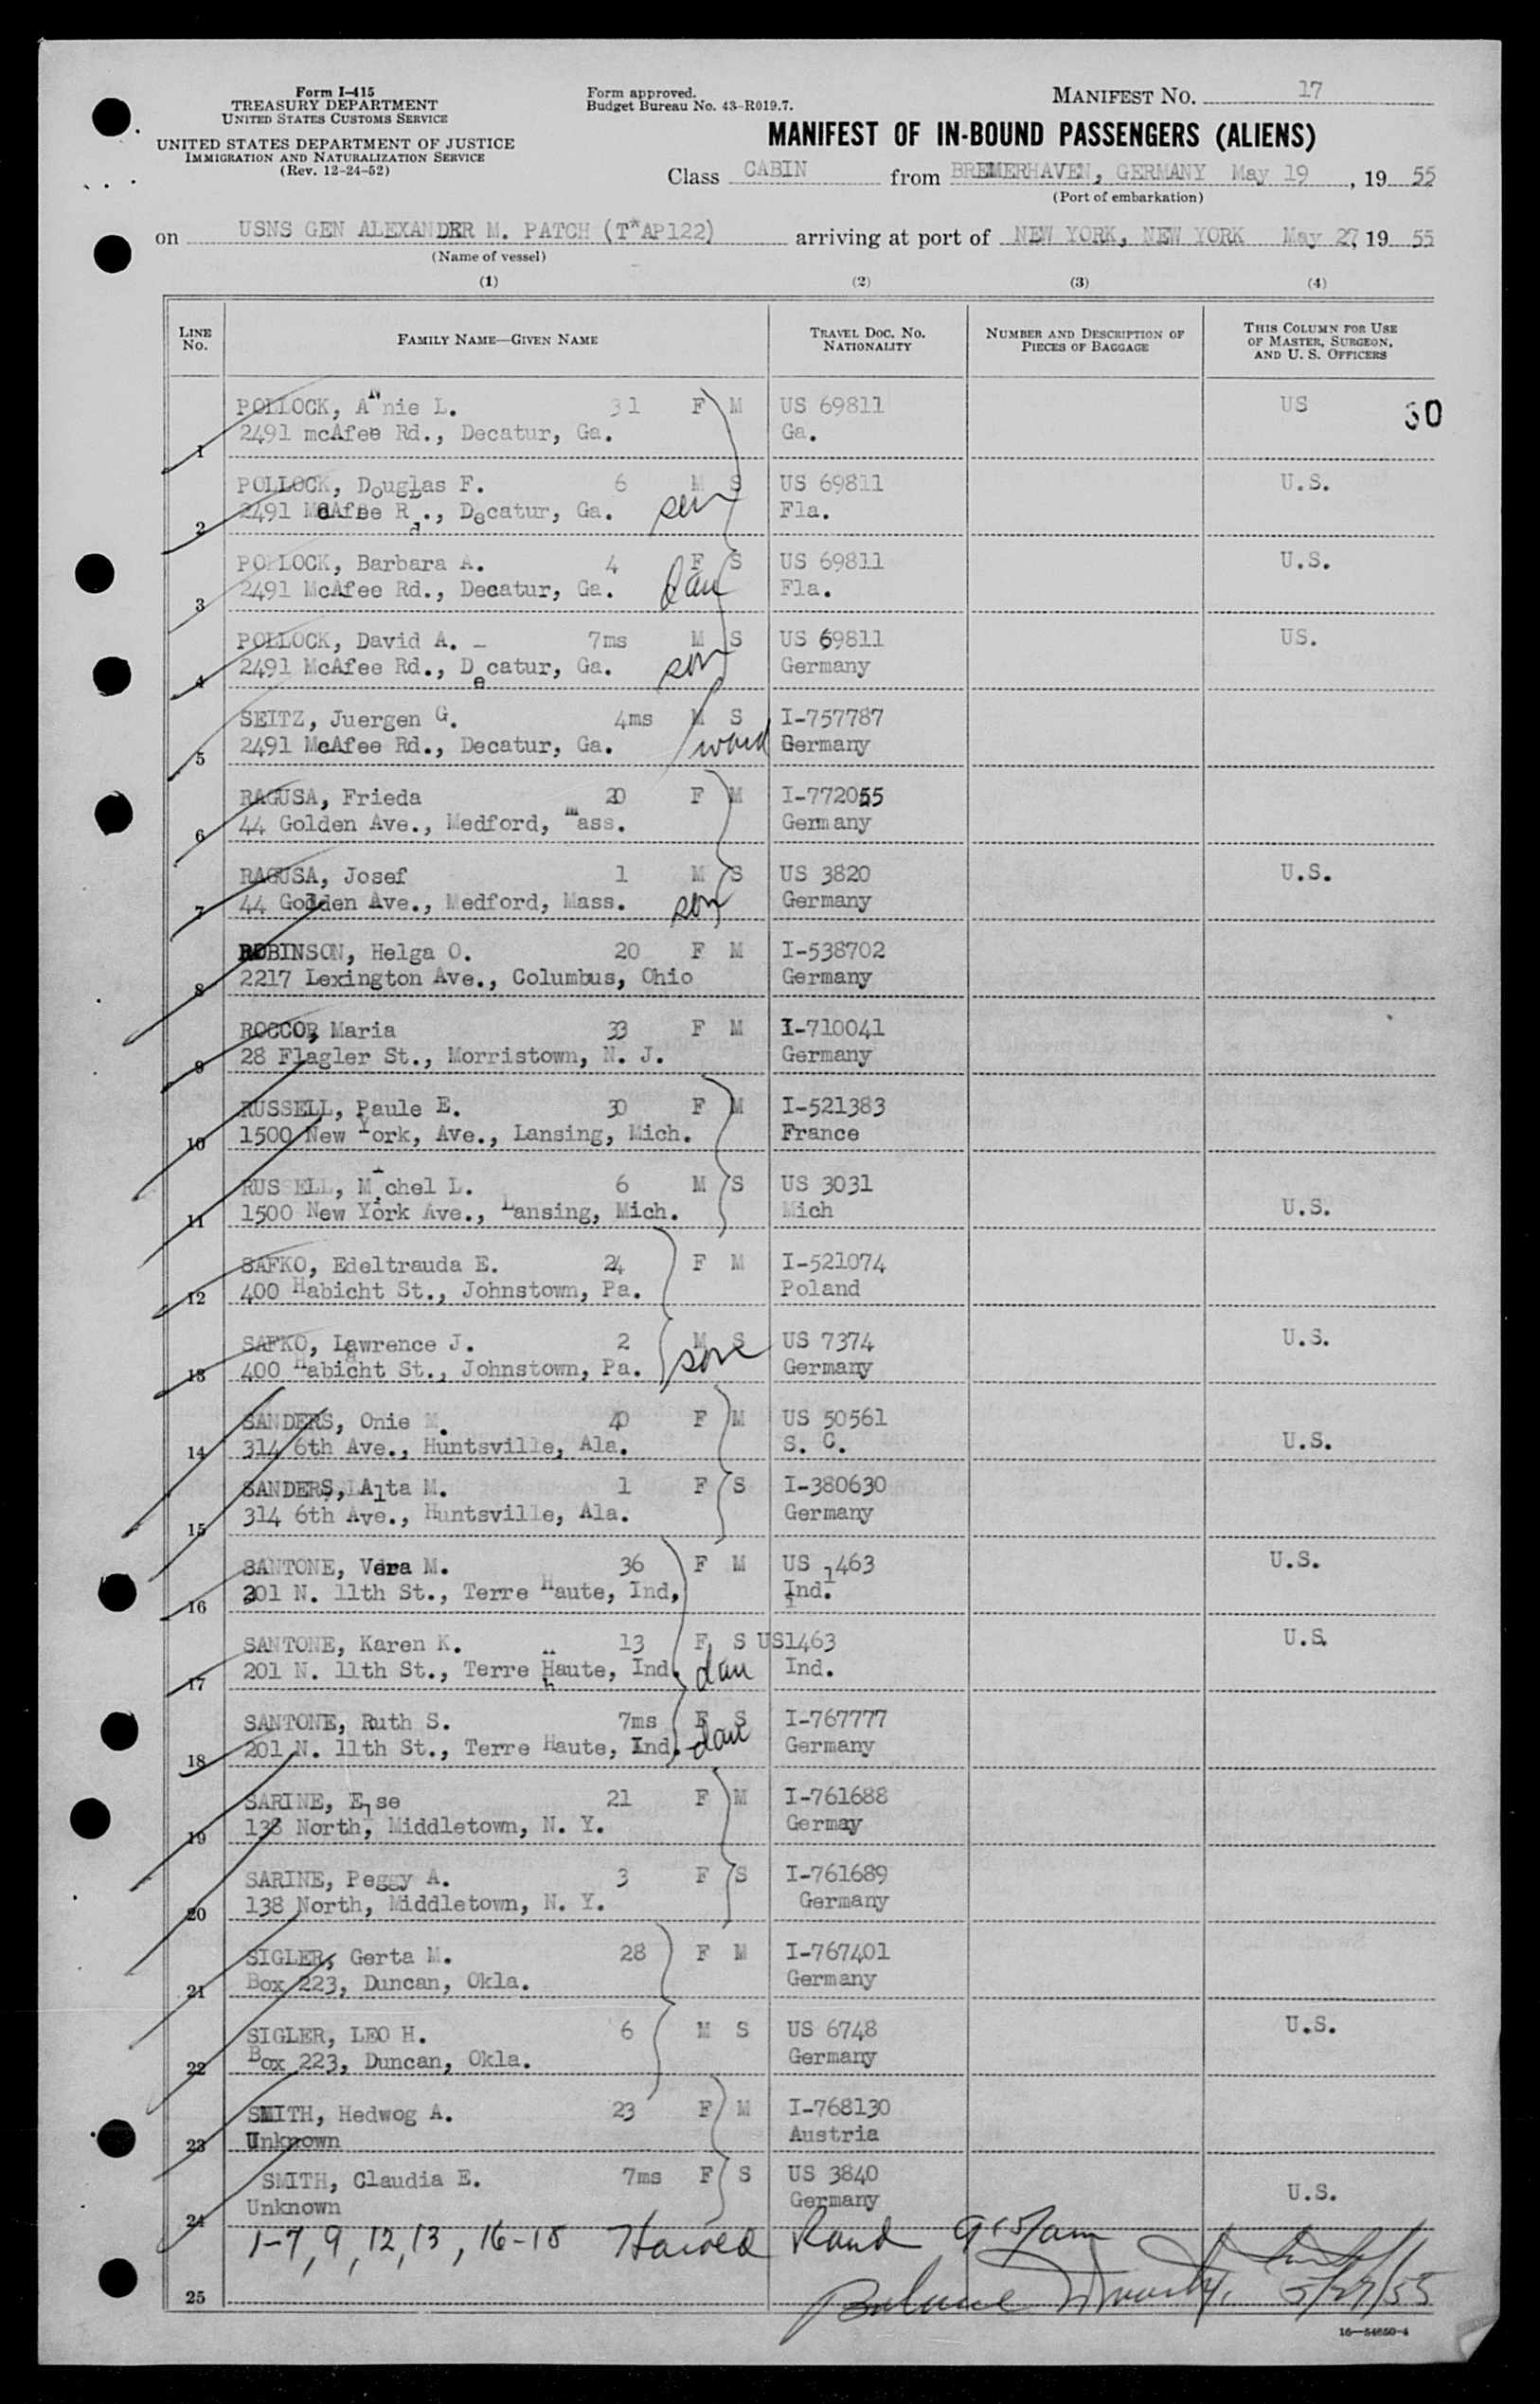 Form I-415
TREASURY DEPARTMENT
UNITED STATES CUSTOMS SERVICE
UNITED STATES DEPARTMENT OF JUSTICE
IMMIGRATION AND NATURALIZATION SERVICE
(Rev. 12-24-52)
Form approved.
Budget Bureau No. 43-R019.7.
MANIFEST NO. 17
MANIFEST OF IN-BOUND PASSENGERS (ALIENS)
Class CABIN from BREMERHAVEN, GERMANY May 19, 19 55
(Port of embarkation)
on USNS GEN ALEXANDER M. PATCH (T*AP122) arriving at port of NEW YORK, NEW YORK May 27, 19 55
(Name of vessel)
(1) (2) (3) (4)
LINE NO. FAMILY NAME—GIVEN NAME TRAVEL DOC. NO. NATIONALITY NUMBER AND DESCRIPTION OF PIECES OF BAGGAGE THIS COLUMN FOR USE OF MASTER, SURGEON, AND U. S. OFFICERS
POLLOCK, Annie L. 31 F M US 69811 US 30
1 2491 mcAfee Rd., Decatur, Ga. Ga.
POLLOCK, Douglas F. 6 M S US 69811 U.S.
2 2491 McAfee Rd., Decatur, Ga. son Fla.
POLLOCK, Barbara A. 4 F S US 69811 U.S.
3 2491 McAfee Rd., Decatur, Ga. dau Fla.
POLLOCK, David A. - 7ms M S US 69811 US.
4 2491 McAfee Rd., Decatur, Ga. son Germany
SEITZ, Juergen G. 4ms M S I-757787
5 2491 McAfee Rd., Decatur, Ga. ward Germany
RAGUSA, Frieda 20 F M I-772055
6 44 Golden Ave., Medford, mass. Germany
RAGUSA, Josef 1 M S US 3820 U.S.
7 44 Golden Ave., Medford, Mass. son Germany
ROBINSON, Helga O. 20 F M I-538702
8 2217 Lexington Ave., Columbus, Ohio Germany
ROCCO, Maria 33 F M I-710041
9 28 Flagler St., Morristown, N. J. Germany
RUSSELL, Paule E. 30 F M I-521383
10 1500 New York, Ave., Lansing, Mich. France
RUSSELL, Michel L. 6 M S US 3031
11 1500 New York Ave., Lansing, Mich. Mich U.S.
SAFKO, Edeltrauda E. 24 F M I-521074
12 400 Habicht St., Johnstown, Pa. Poland
SAFKO, Lawrence J. 2 M S US 7374 U.S.
13 400 Habicht St., Johnstown, Pa. son Germany
SANDERS, Onie M. 40 F M US 50561
14 314 6th Ave., Huntsville, Ala. S. C. U.S.
SANDERS, Alta M. 1 F S I-380630
15 314 6th Ave., Huntsville, Ala. Germany
SANTONE, Vera M. 36 F M US 1463 U.S.
16 201 N. 11th St., Terre Haute, Ind, Ind.
SANTONE, Karen K. 13 F S US1463 U.S.
17 201 N. 11th St., Terre Haute, Ind. dau Ind.
SANTONE, Ruth S. 7ms F S I-767777
18 201 N. 11th St., Terre Haute, Ind. dau Germany
SARINE, Else 21 F M I-761688
19 138 North, Middletown, N. Y. Germay
SARINE, Peggy A. 3 F S I-761689
20 138 North, Middletown, N. Y. Germany
SIGLER, Gerta M. 28 F M I-767401
21 Box 223, Duncan, Okla. Germany
SIGLER, LEO H. 6 M S US 6748 U.S.
22 Box 223, Duncan, Okla. Germany
SMITH, Hedwog A. 23 F M I-768130
23 Unknown Austria
SMITH, Claudia E. 7ms F S US 3840 U.S.
24 Unknown Germany
1-7, 9, 12, 13, 16-18 Harold Rand
25 Balance 5/27/55
16—54650-4